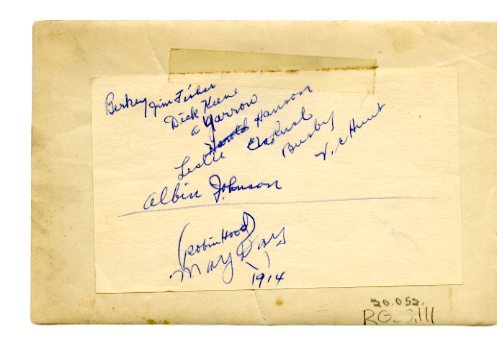 Berkey Jim Fisher
Dick Keene
a Yarrow
Harold Hanson
Leslie
Busby V.C Hunt
Albin Johnson
(Robin Hood)
May Day
1914
20.052.
RG_3.111